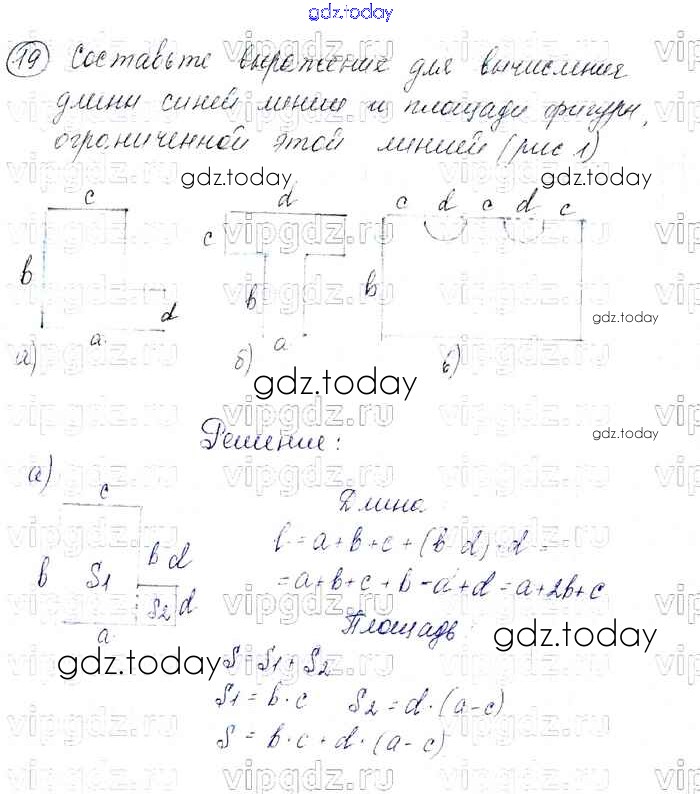 gdz.today
19 Составьте выражение для вычисления
длины синей линии и площади фигуры,
ограниченной этой линией (рис 1)
gdz.today gdz.today
c d c d c d c
c
b b b
d gdz.today
a a
а) б) в)
gdz.today
gdz.today
Решение:
а)
c
Длина
b S1 b d l = a + b + c + (b d) + d =
S2 d = a + b + c + b - d + d = a + 2b + c
a Площадь:
gdz.today
gdz.today S = S1 + S2
S1 = b · c S2 = d · (a - c)
S = b · c + d · (a - c)
vipgdz.ru